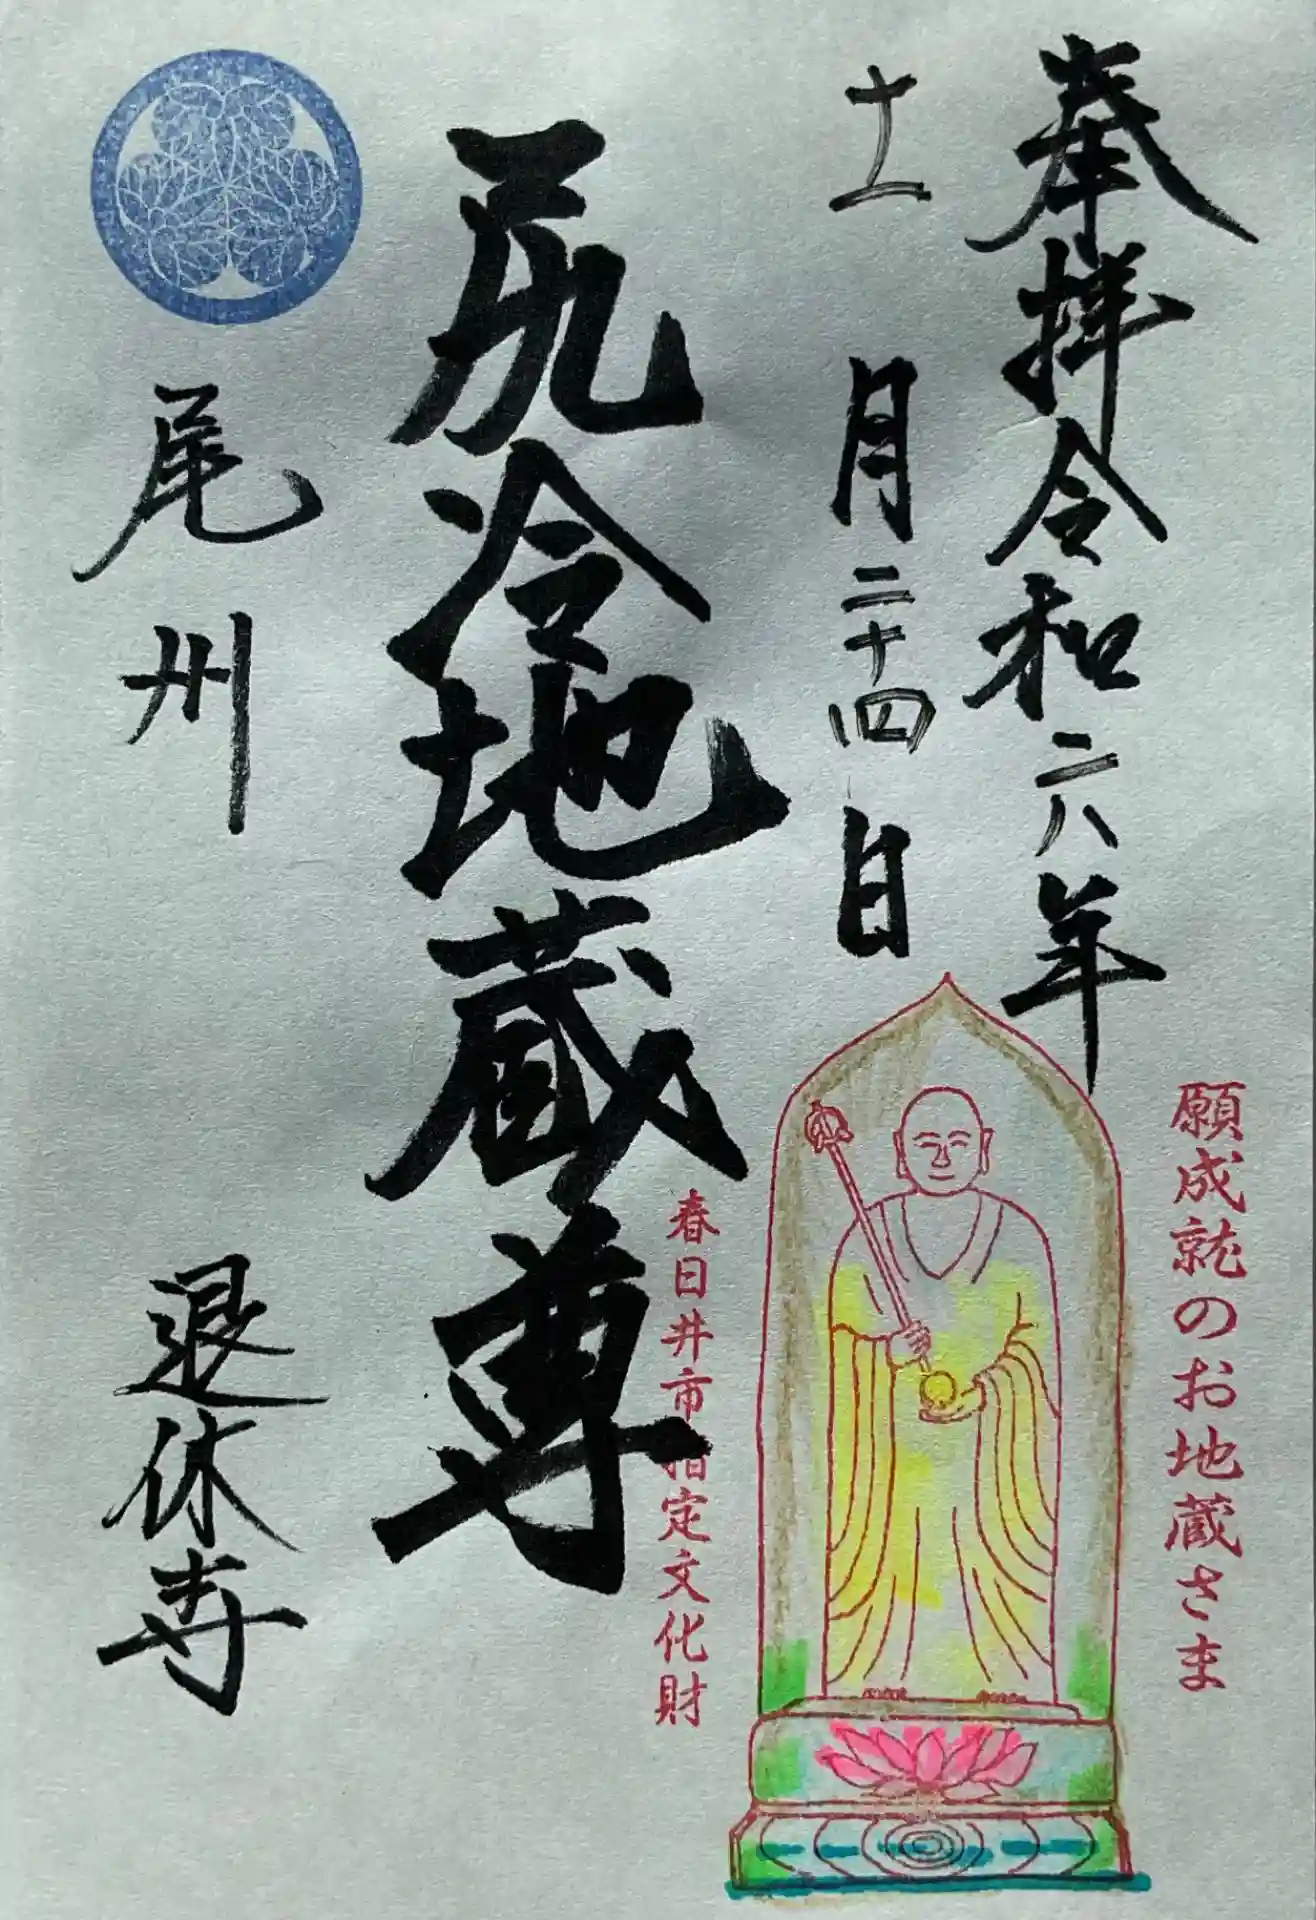 奉拝令和六年
十一月二十四日
願成就のお地蔵さま
尻冷地蔵尊
春日井市指定文化財
尾州
退休寺